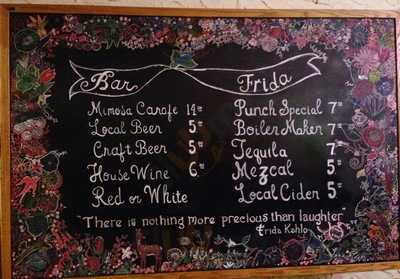 Bar Frida
Mimosa Carafe 14⁰⁰
Local Beer 5⁰⁰
Craft Beer 5⁰⁰
House Wine 6⁰⁰
Red or White
Punch Special 7⁰⁰
Boiler Maker 7⁰⁰
Tequila 7⁰⁰
Mezcal 5⁰⁰
Local Cider 5⁰⁰
"There is nothing more precious than laughter"
Frida Kahlo